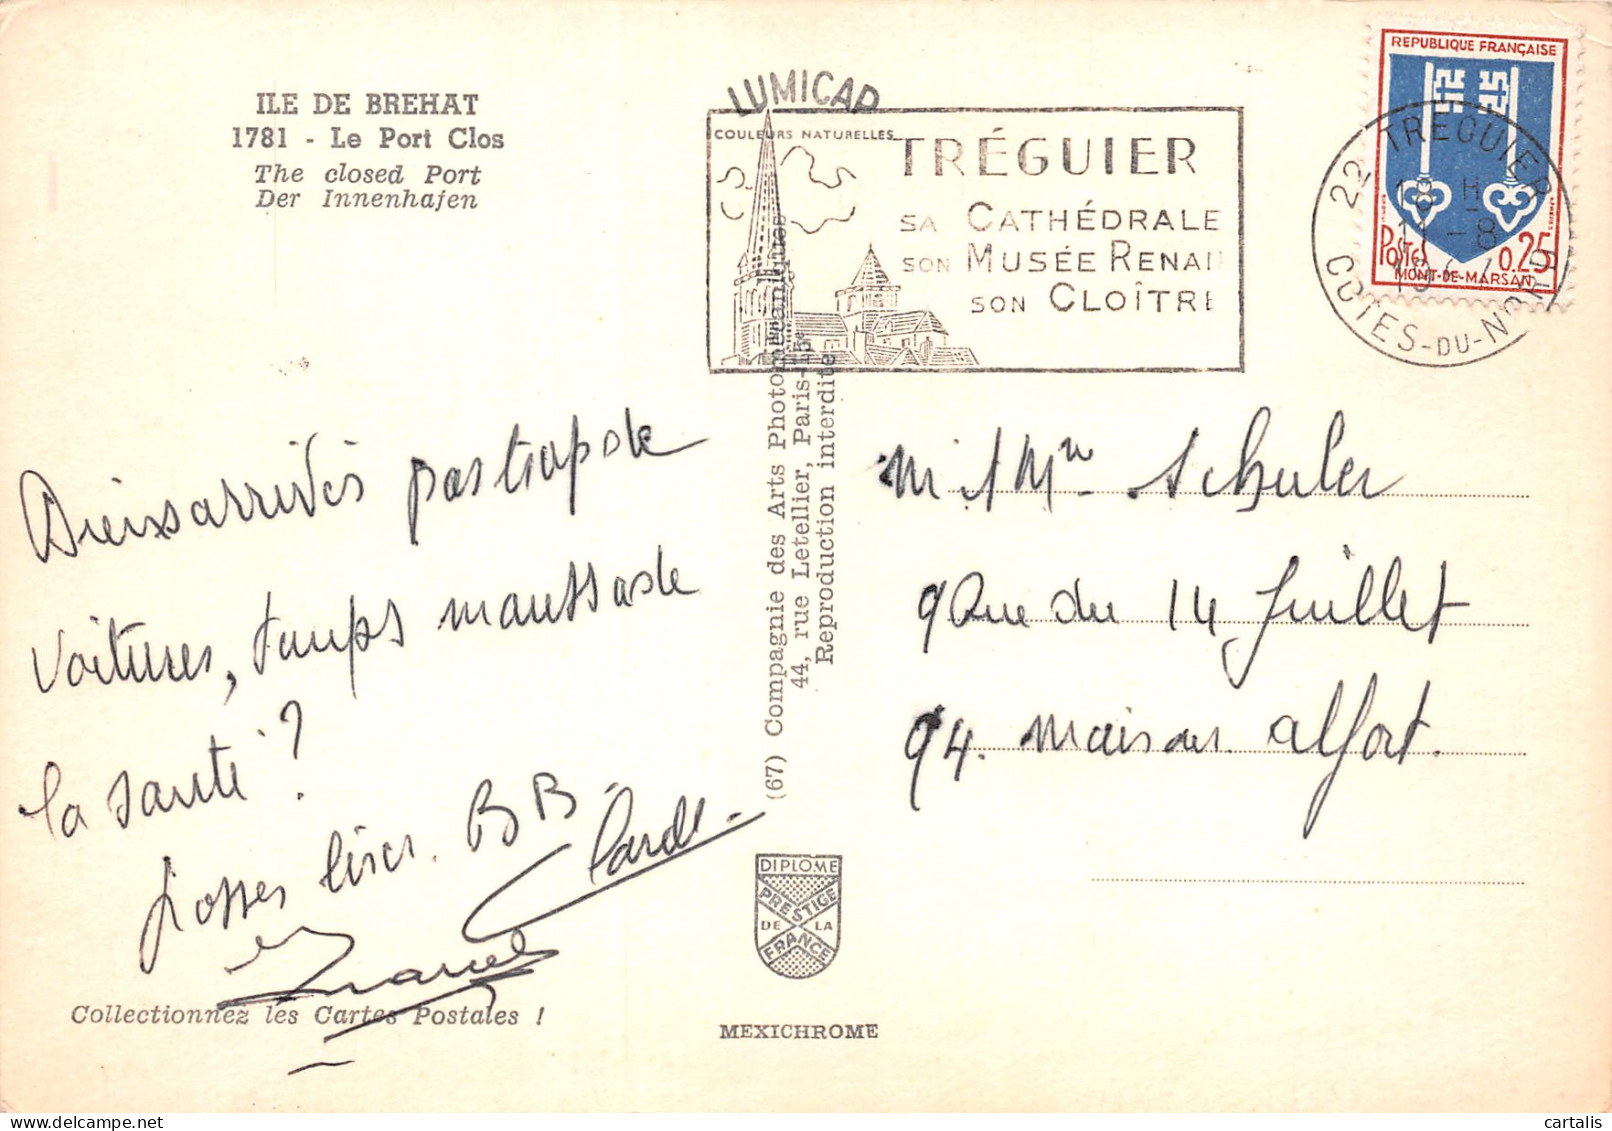 ILE DE BREHAT
1781 - Le Port Clos
The closed Port
Der Innenhafen
LUMICAP
COULEURS NATURELLES
TRÉGUIER
SA CATHÉDRALE
SON MUSÉE RENAN
SON CLOÎTRE
REPUBLIQUE FRANÇAISE
POSTES 0.25
MONT-DE-MARSAN
22 TREGUIER
18 H
-8
19
COTES-DU-NORD
Bien arrivés pas trop de
voitures, temps maussade
la santé ?
grosses bises. BB
Marcel
Collectionnez les Cartes Postales !
(67) Compagnie des Arts Photomécaniques
44, rue Letellier, Paris-15e
Reproduction interdite
DIPLOME
PRESTIGE
DE LA
FRANCE
MEXICHROME
M et Mme Schuler
9 Rue du 14 Juillet
94. Maisons Alfort.
cartalis